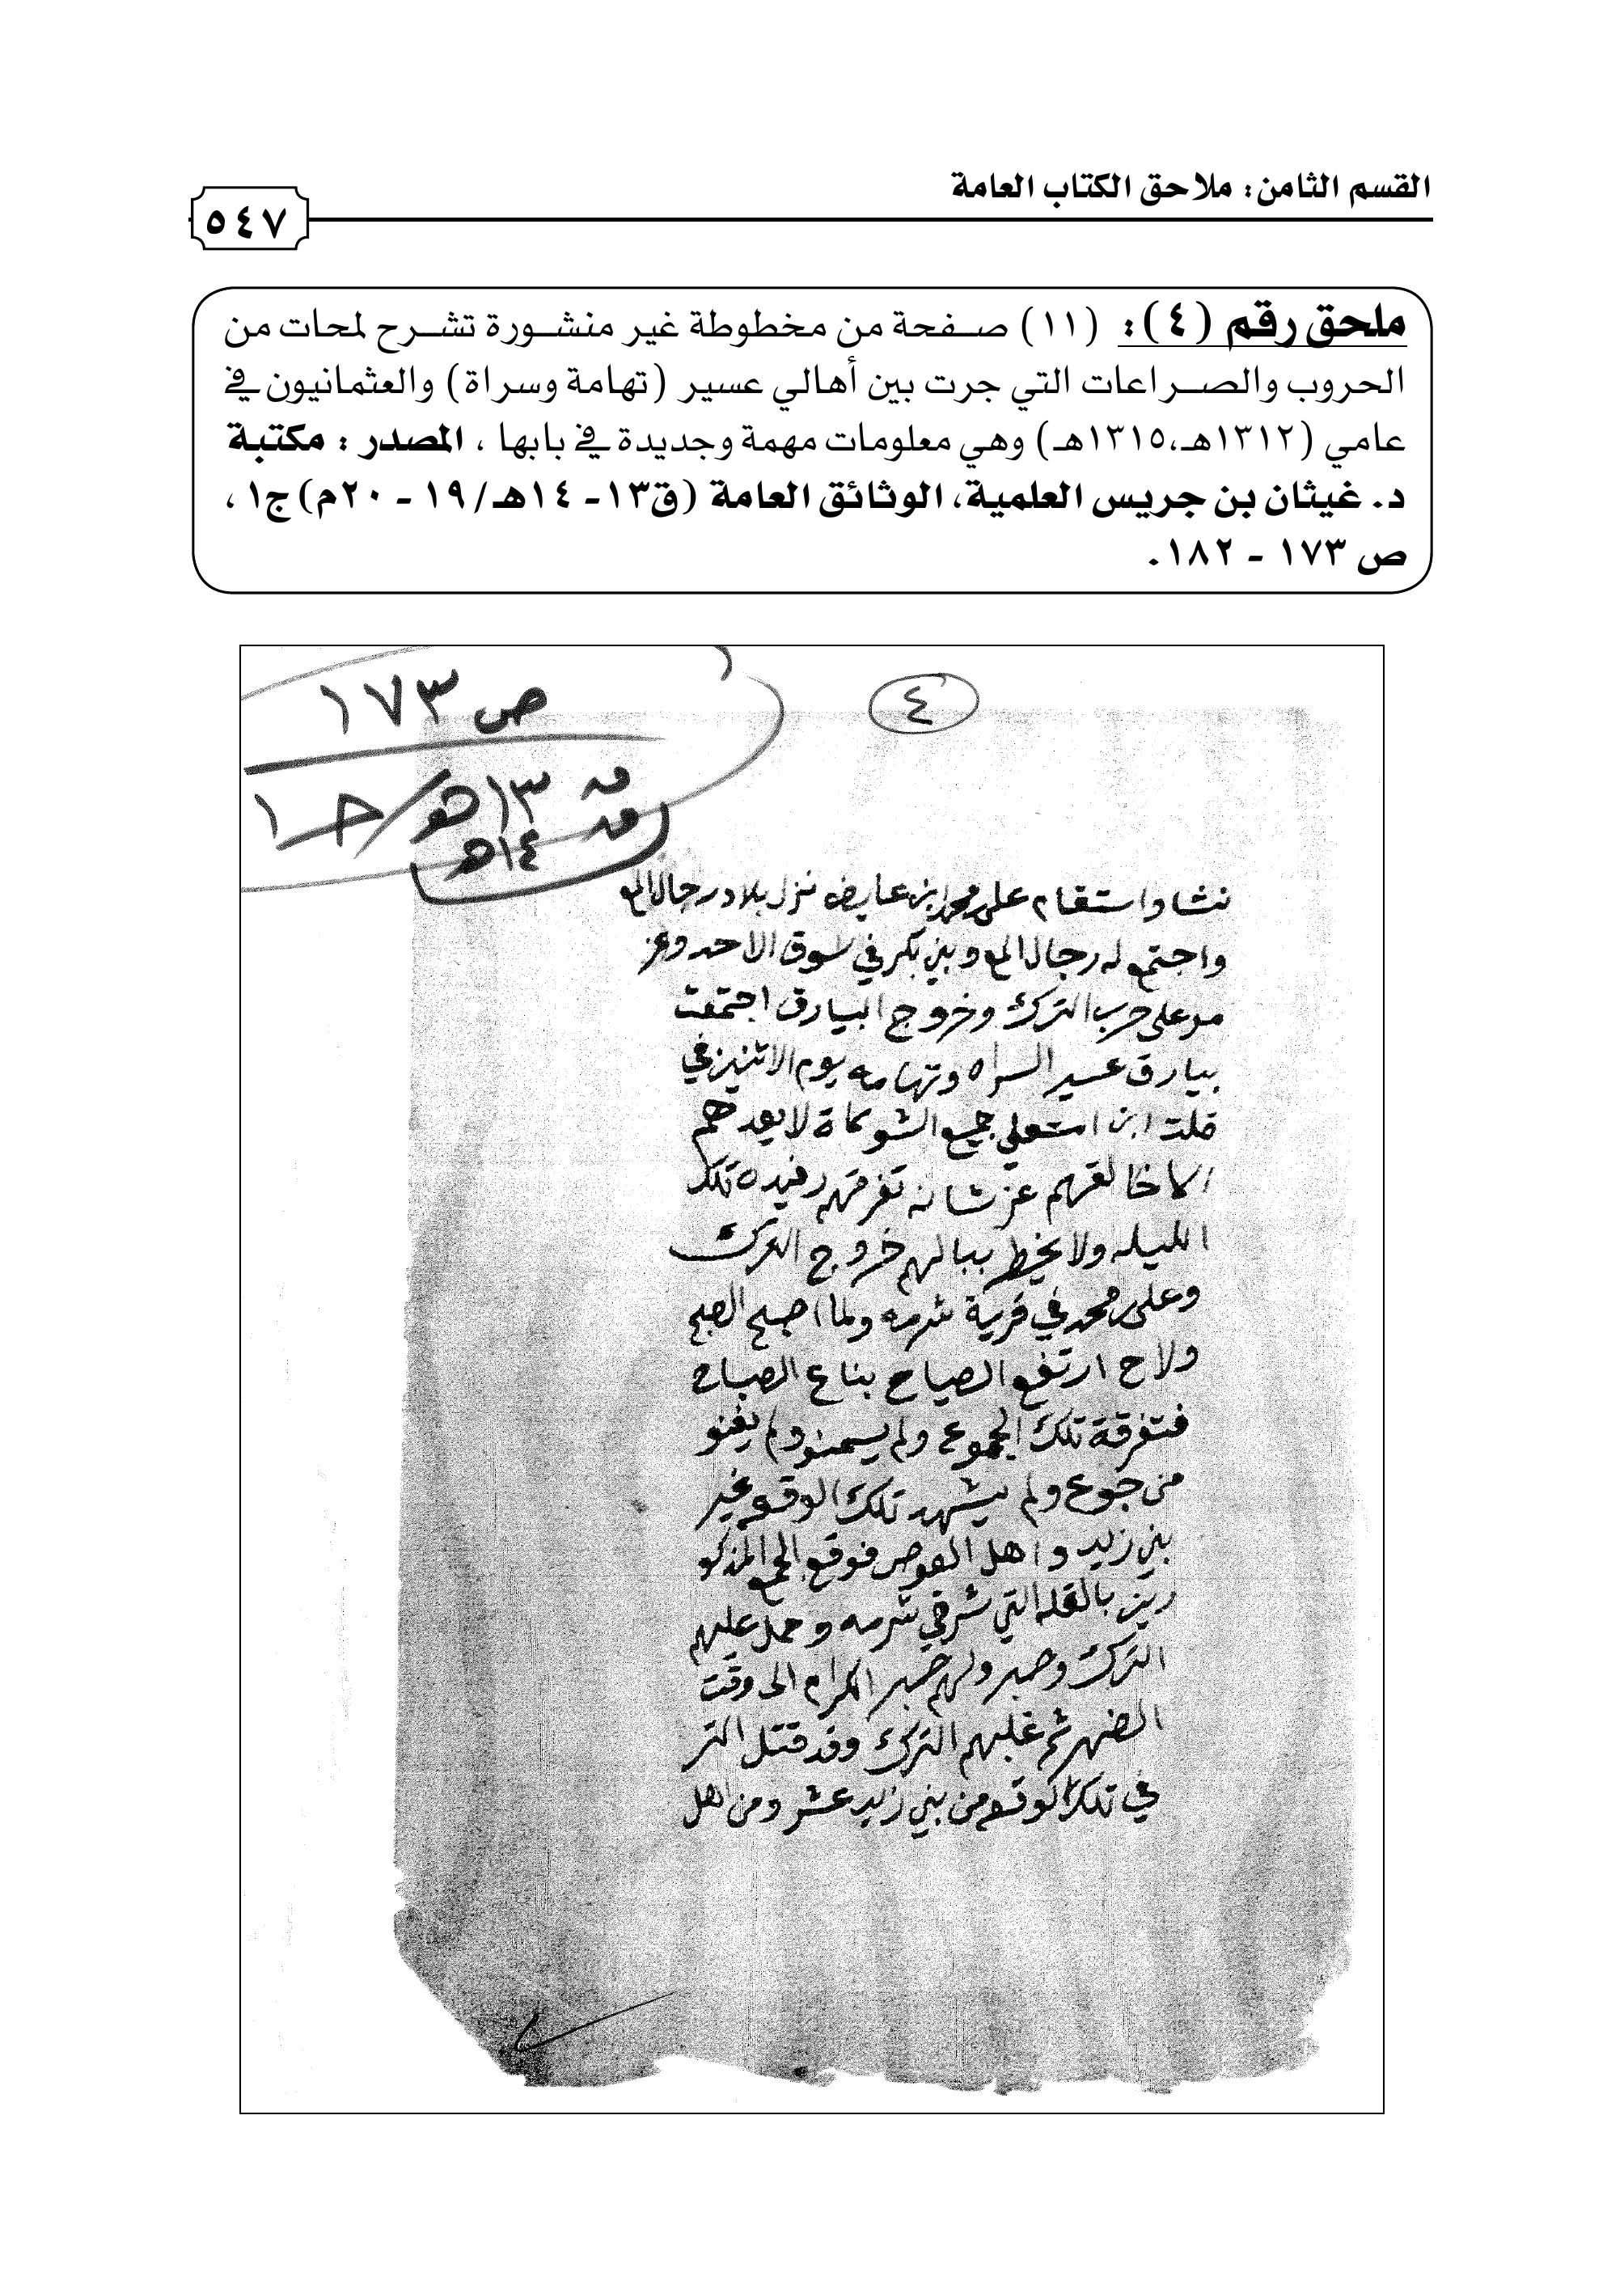 القسم الثامن: ملاحق الكتاب العامة
٥٤٧
ملحق رقم (٤): (١١) صفحة من مخطوطة غير منشورة تشرح لمحات من
الحروب والصراعات التي جرت بين أهالي عسير (تهامة وسراة) والعثمانيون في
عامي (١٣١٢هـ،١٣١٥هـ) وهي معلومات مهمة وجديدة في بابها ، المصدر : مكتبة
د. غيثان بن جريس العلمية، الوثائق العامة (ق١٣- ١٤هـ/ ١٩ - ٢٠م) ج١ ،
ص ١٧٣ - ١٨٢.
٤
ص ١٧٣
ق ١٣هـ/ حـ ١
ق ١٤هـ
نشا واستقام على محمد ابن عايض نزل بلاد رجال المع
واجتمع له رجال المع وبني بكر في سوق الاحد وعز
مو على حرب الترك وخروج البيارق اجتمعت
بيارق عسير السراه وتهامه يوم الاثنين في
قلت ابن استعلي جميع الشوكاة لا يعدهم
الا خالقهم عز شانه تفرقهم رفيده تلك
الليله ولا يخطر ببالهم خروج الترك
وعلى محمد في قرية شرمه ولما اصبح الصبح
ولاح ارتفع الصياح بناع الصباح
فتفرقة تلك الجموع ولم يسمنو ولم يغنو
من جوع ولم يشهد تلك الوقعه غير
بني زيد واهل العوص فوقع الجمع المذكو
رين بالقله التي شرقي شرمه وحمل عليهم
الترك وصبر ولهم صبر الكرام الى وقت
الضهر ثم غلبهم الترك وقد قتل التر
في تلك الوقعه من بني زيد عشر ومن اهل